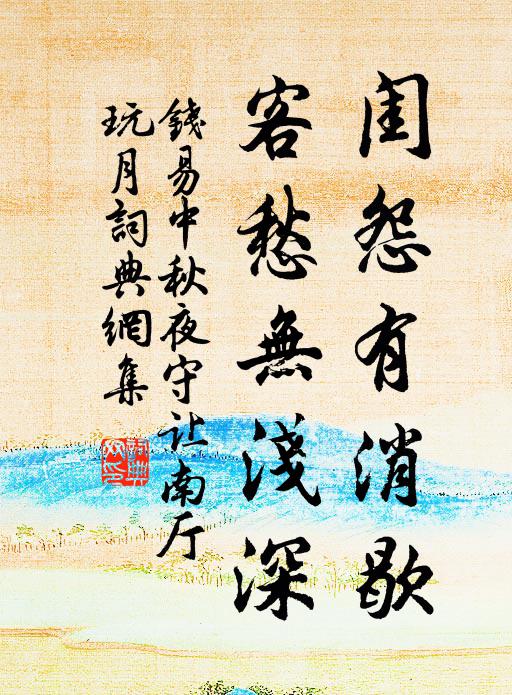 闺怨有消歇
客愁無淺深
錢易中秋夜守让南厅
玩月詞典網集